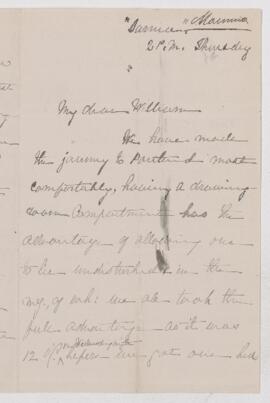 2 P.M. Thursday
My dear William
We have made
the journey to Portland most
comfortably, having a drawing
room Compartment has the
advantage of allowing one
to be undisturbed in the
mg, of wh: we all took the
full advantage as it was
12 o/c before we got our bed